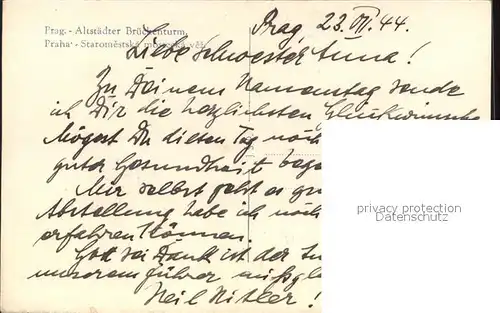 Prag - Altstädter Brückenturm,
Praha - Staroměstská mostecká věž.
Prag 23. VII. 44.
Liebe Schwester Anna!
Zu Deinem Namenstag sende
ich Dir die herzlichsten Glückwünsche
Mögest Du diesen Tag noch
guter Gesundheit bege
Mir selbst geht es gu
Abstellung habe ich noch
erfahren können.
Gott sei Dank ist der
unserem Führer mißgl
Heil Hitler!
privacy protection
Datenschutz